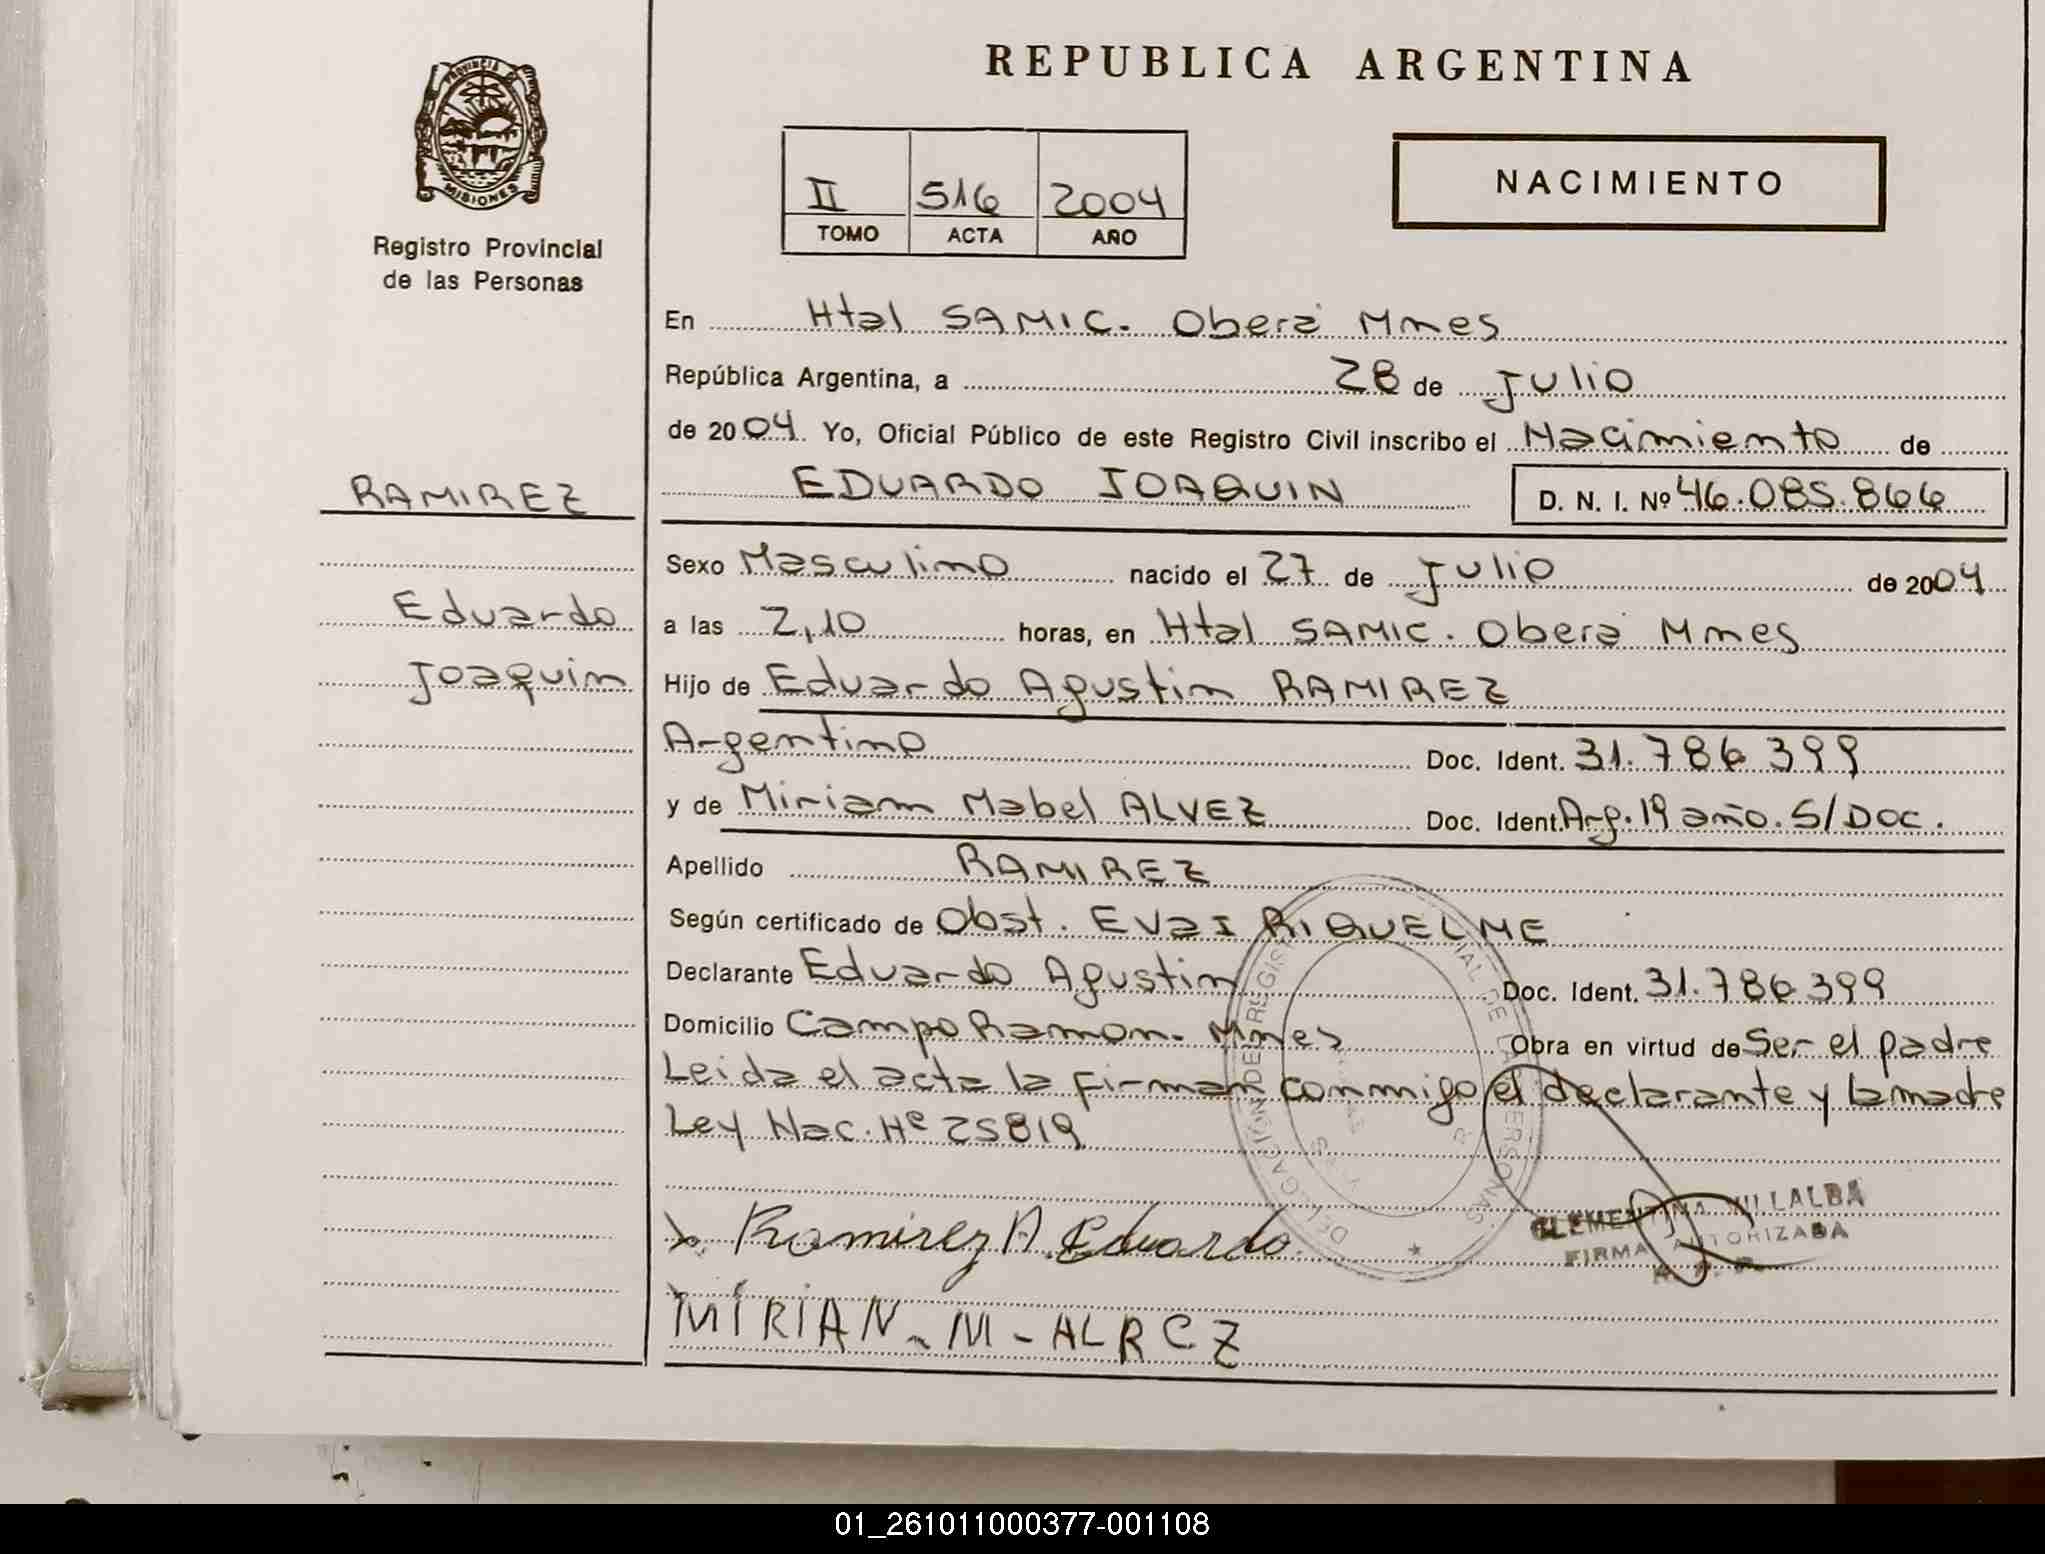 REPUBLICA ARGENTINA
PROVINCIA DE
MISIONES
Registro Provincial
de las Personas
II 516 2004
TOMO ACTA AÑO
NACIMIENTO
En Htal SAMIC. Oberá Mnes
República Argentina, a 28 de Julio
de 2004. Yo, Oficial Público de este Registro Civil inscribo el Nacimiento de
RAMIREZ
EDUARDO JOAQUIN D. N. I. Nº 46.085.866
Sexo Masculino nacido el 27 de Julio de 2004
Eduardo
a las 2,10 horas, en Htal SAMIC. Oberá Mnes
Joaquin
Hijo de Eduardo Agustin RAMIREZ
Argentino Doc. Ident. 31.786.399
y de Miriam Mabel ALVEZ Doc. Ident. Arg. 19 año. S/Doc.
Apellido RAMIREZ
Según certificado de Obst. EVaI RIQUELME
Declarante Eduardo Agustin Doc. Ident. 31.786.399
Domicilio Campo Ramon. Mnes Obra en virtud de Ser el padre
Leida el acta la firman conmigo el declarante y la madre
Ley Nac. Nº 25819
DELEGACIÓN DEL REGIS IAL DE LA PERSONAS
CLEMENTINA VILLALBA
FIRMA AUTORIZADA
Ramirez A. Eduardo
MIRIAN. M - ALRCZ
01_261011000377-001108